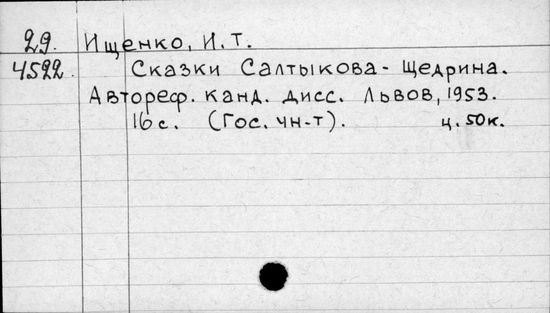 29. Ищенко, И. Т.
4522. Сказки Салтыкова-Щедрина.
Автореф. канд. дисс. Львов, 1953.
16 с. (Гос. чн-т). ц. 50 к.